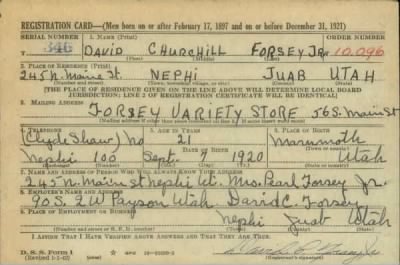 REGISTRATION CARD—(Men born on or after February 17, 1897 and on or before December 31, 1921)
SERIAL NUMBER 1. NAME (Print) ORDER NUMBER
T 346 DAVID CHURCHILL FORSEY JR 10,096
(First) (Middle) (Last)
2. PLACE OF RESIDENCE (Print)
245 N. Main St. NEPHI JUAB UTAH
(Number and street) (Town, township, village, or city) (County) (State)
[THE PLACE OF RESIDENCE GIVEN ON THE LINE ABOVE WILL DETERMINE LOCAL BOARD
JURISDICTION; LINE 2 OF REGISTRATION CERTIFICATE WILL BE IDENTICAL]
3. MAILING ADDRESS
FORSEY VARIETY STORE 56 S. Main St
[Mailing address if other than place indicated on line 2. If same insert word same]
4. TELEPHONE 5. AGE IN YEARS 6. PLACE OF BIRTH
(Clyde Shaw) No 21 Mammoth
DATE OF BIRTH (Town or county)
Nephi 100 Sept. 9 1920 Utah
(Exchange) (Number) (Mo.) (Day) (Yr.) (State or country)
7. NAME AND ADDRESS OF PERSON WHO WILL ALWAYS KNOW YOUR ADDRESS
245 N. Main St Nephi Ut. Mrs. Pearl Forsey Jr.
8. EMPLOYER'S NAME AND ADDRESS
90 S. 2 W Payson Utah David C. Forsey
9. PLACE OF EMPLOYMENT OR BUSINESS
Nephi Juab Utah
(Number and street or R. F. D. number) (Town) (County) (State)
I AFFIRM THAT I HAVE VERIFIED ABOVE ANSWERS AND THAT THEY ARE TRUE.
D. S. S. Form 1
(Revised 1-1-42) (over)